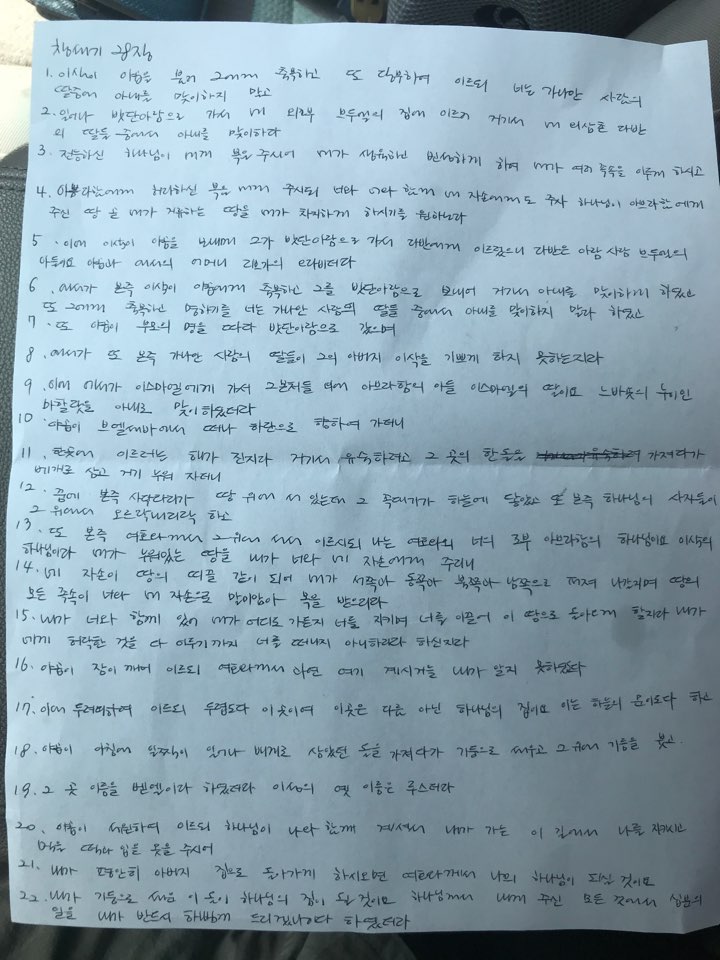 창세기 28장
1. 이삭이 야곱을 불러 그에게 축복하고 또 당부하여 이르되 너는 가나안 사람의
딸들중에 아내를 맞이하지 말고
2. 일어나 밧단아람으로 가서 네 외조부 브두엘의 집에 이르러 거기서 네 외삼촌 라반
의 딸들 중에서 아내를 맞이하라
3. 전능하신 하나님이 네게 복을 주시어 네가 생육하고 번성하게 하여 네가 여러 족속을 이루게 하시고
4. 아브라함에게 허락하신 복을 네게 주시되 너와 너와 함께 네 자손에게도 주사 하나님이 아브라함에게
주신 땅 곧 네가 거류하는 땅을 네가 차지하게 하시기를 원하노라
5. 이에 이삭이 야곱을 보내매 그가 밧단아람으로 가서 라반에게 이르렀으니 라반은 아람 사람 브두엘의
아들이요 야곱과 에서의 어머니 리브가의 오라비더라
6. 에서가 본즉 이삭이 야곱에게 축복하고 그를 밧단아람으로 보내어 거기서 아내를 맞이하게 하였고
또 그에게 축복하고 명하기를 너는 가나안 사람의 딸들 중에서 아내를 맞이하지 말라 하였고
7. 또 야곱이 부모의 명을 따라 밧단아람으로 갔으며
8. 에서가 또 본즉 가나안 사람의 딸들이 그의 아버지 이삭을 기쁘게 하지 못하는지라
9. 이에 에서가 이스마엘에게 가서 그 본처들 외에 아브라함의 아들 이스마엘의 딸이요 느바욧의 누이인
마할랏을 아내로 맞이하였더라
10. 야곱이 브엘세바에서 떠나 하란으로 향하여 가더니
11. 한곳에 이르러는 해가 진지라 거기서 유숙하려고 그 곳의 한 돌을 가져다가
베개로 삼고 거기 누워 자더니
12. 꿈에 본즉 사닥다리가 땅 위에 서 있는데 그 꼭대기가 하늘에 닿았고 또 본즉 하나님의 사자들이
그 위에서 오르락내리락 하고
13. 또 본즉 여호와께서 그 위에 서서 이르시되 나는 여호와니 너의 조부 아브라함의 하나님이요 이삭의
하나님이라 네가 누워있는 땅을 내가 너와 네 자손에게 주리니
14. 네 자손이 땅의 티끌 같이 되어 네가 서쪽과 동쪽과 북쪽과 남쪽으로 퍼져 나갈지며 땅의
모든 족속이 너와 네 자손으로 말미암아 복을 받으리라
15. 내가 너와 함께 있어 네가 어디로 가든지 너를 지키며 너를 이끌어 이 땅으로 돌아오게 할지라 내가
네게 허락한 것을 다 이루기까지 너를 떠나지 아니하리라 하신지라
16. 야곱이 잠이 깨어 이르되 여호와께서 과연 여기 계시거늘 내가 알지 못하였도다
17. 이에 두려워하여 이르되 두렵도다 이 곳이여 이것은 다름 아닌 하나님의 집이요 이는 하늘의 문이로다 하고
18. 야곱이 아침에 일찍이 일어나 베개로 삼았던 돌을 가져다가 기둥으로 세우고 그 위에 기름을 붓고.
19. 그 곳 이름을 벧엘이라 하였더라 이 성의 옛 이름은 루스더라
20. 야곱이 서원하여 이르되 하나님이 나와 함께 계셔서 내가 가는 이 길에서 나를 지키시고
먹을 떡과 입을 옷을 주시어
21. 내가 평안히 아버지 집으로 돌아가게 하시오면 여호와께서 나의 하나님이 되실 것이요
22. 내가 기둥으로 세운 이 돌이 하나님의 집이 될 것이요 하나님께서 내게 주신 모든 것에서 십분의
일을 내가 반드시 하나님께 드리겠나이다 하였더라